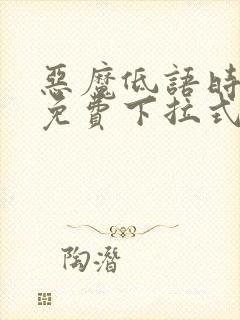 惡魔低語時
免費下拉式
陶潛